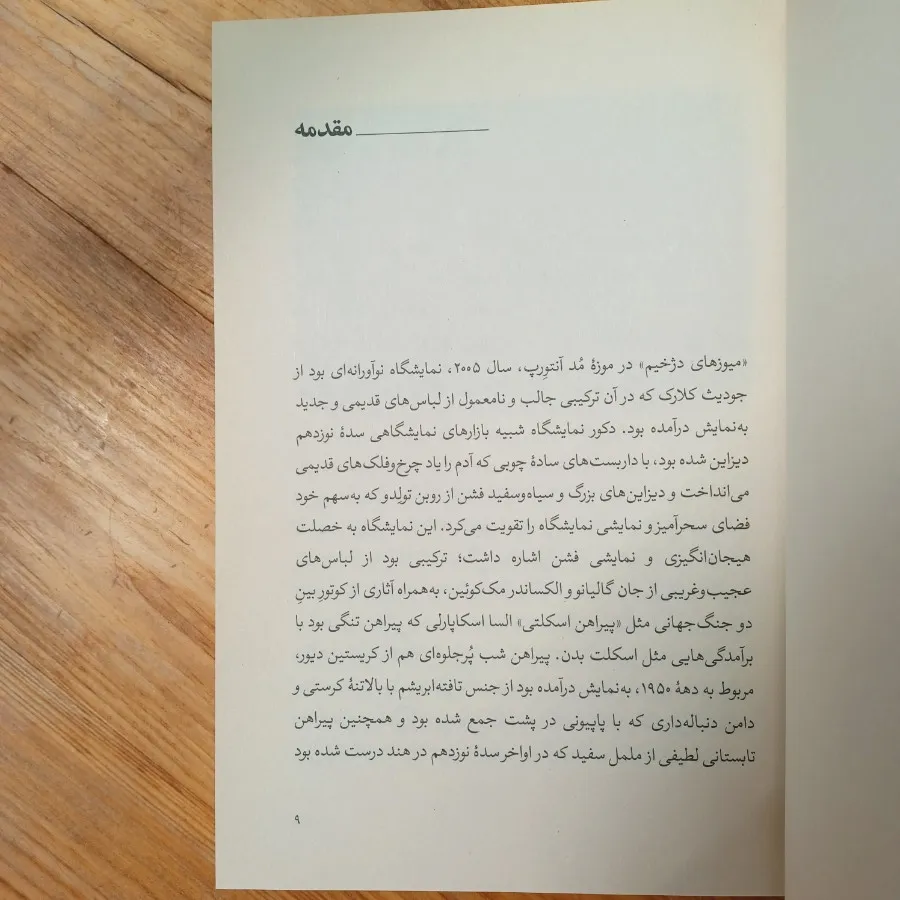 مقدمه
«میوزهای دژخیم» در موزهٔ مُد آنتورپ، سال ۲۰۰۵، نمایشگاه نوآورانه‌ای بود از
جودیث کلارک که در آن ترکیبی جالب و نامعمول از لباس‌های قدیمی و جدید
به‌نمایش درآمده بود. دکور نمایشگاه شبیه بازارهای نمایشگاهی سدهٔ نوزدهم
دیزاین شده بود، با داربست‌های سادهٔ چوبی که آدم را یاد چرخ‌وفلک‌های قدیمی
می‌انداخت و دیزاین‌های بزرگ و سیاه‌وسفید فشن از روبن تولدو که به‌سهم خود
فضای سحرآمیز و نمایشی نمایشگاه را تقویت می‌کرد. این نمایشگاه به خصلت
هیجان‌انگیزی و نمایشی فشن اشاره داشت؛ ترکیبی بود از لباس‌های
عجیب‌وغریبی از جان گالیانو و الکساندر مک‌کوئین، به‌همراه آثاری از کوتورِ بینِ
دو جنگ‌جهانی مثل «پیراهن اسکلتی» السا اسکاپارلی که پیراهن تنگی بود با
برآمدگی‌هایی مثل اسکلت بدن. پیراهن شب پُرجلوه‌ای هم از کریستین دیور،
مربوط به دههٔ ۱۹۵۰، به‌نمایش درآمده بود از جنس تافته‌ابریشم با بالاتنهٔ کرستی و
دامن دنباله‌داری که با پاپیونی در پشت جمع شده بود و همچنین پیراهن
تابستانی لطیفی از ململ سفید که در اواخر سدهٔ نوزدهم در هند درست شده بود
۹